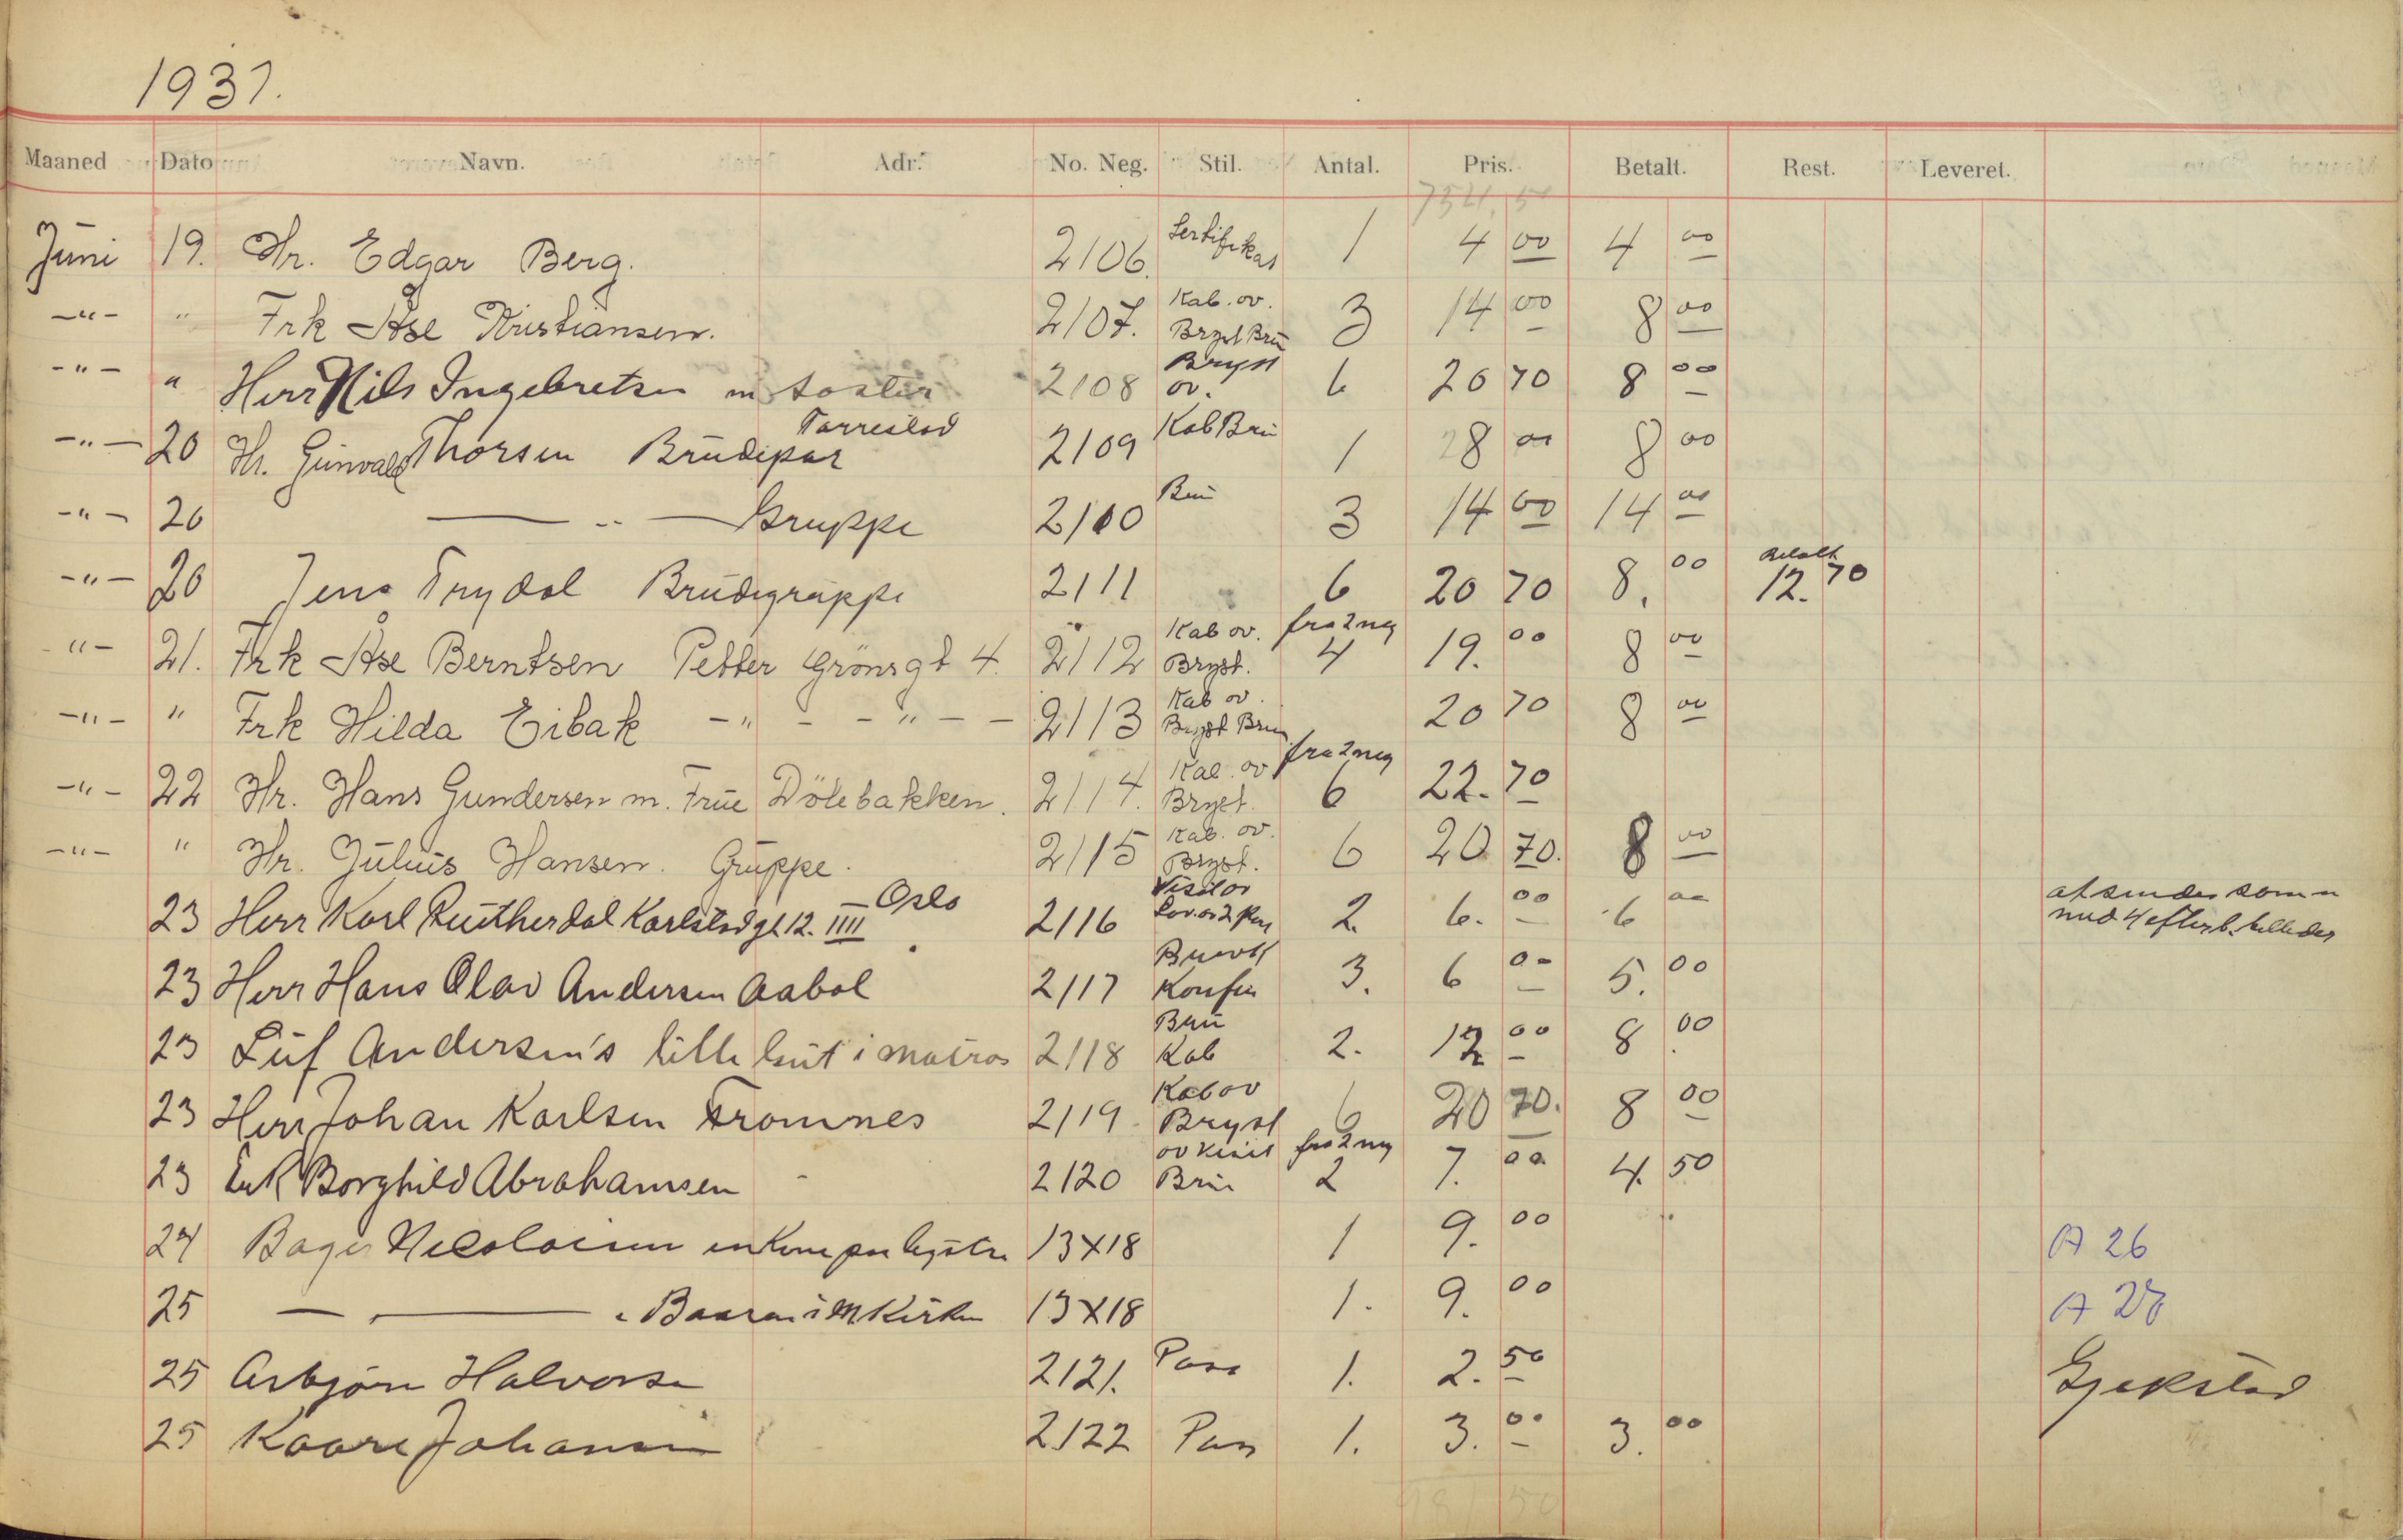 1937.
Maaned Dato Navn. Adr. No. Neg. Stil. Antal. Pris. Betalt. Rest. Leveret.
754.50
Juni 19. Hr. Edgar Berg. 2106. Sertifikat 1 4 00 4 00
-"- " Frk Åse Kristiansen. 2107. Kab. ov. Bryst Brun 3 14 00 8 00
-"- " Herr Nils Ingebretsen m søster 2108 Bryst ov. 6 20 70 8 00
-"- 20 Hr. Gunvald Thorsen Brudepar Torrestad 2109 Kab Brun 1 8 00 8 00
-"- 20 -"- Gruppe 2110 Brun 3 14 00 14 00
-"- 20 Jens Trydal Brudegruppe 2111 6 20 70 8. 00 Betalt 12.70
-"- 21. Frk Åse Berntsen Petter Grönsgt 4. 2112 Kab ov. Bryst. fra 2 neg 4 19. 00 8 00
-"- " Frk Hilda Eibak -"- -"- 2113 Kab ov. Bryst Brun 20 70 8 00
-"- 22 Hr. Hans Gundersen m. Frue Dölebakken. 2114. Kab. ov Bryst. fra 2 neg 6 22. 70
-"- " Hr. Julius Hansen. Gruppe. 2115 Kab. ov. Bryst. 6 20 70. 8 00
23 Herr Karl Rutherdal Karlstadgt 12. IIII Oslo 2116 Visit ov 2. 6. 00 6 00 med 4 efterb. billeder
23 Herr Hans Olav Andersen Aabol 2117 Konfir 3. 6 00 5. 00
23 Leif Andersen's lille gut i matros 2118 Brun Kab 2. 12 00 8 00
23 Herr Johan Karlsen Fromnes 2119 Kab ov Bryst 6 20 70. 8 00
23 Frk Borghild Abrahamsen 2120 ov Visit Brun fra 2 neg 2 7. 00 4. 50
24 Bager Nicolaisen 13X18 1 9. 00 A 26
25 — " — Baaren i Kirken 13X18 1. 9. 00 A 28
25 Asbjörn Halvorsen 2121. Pass 1. 2. 50 Gjekstad
25 Kaare Johansen 2122 Pass 1. 3. 00 3. 00